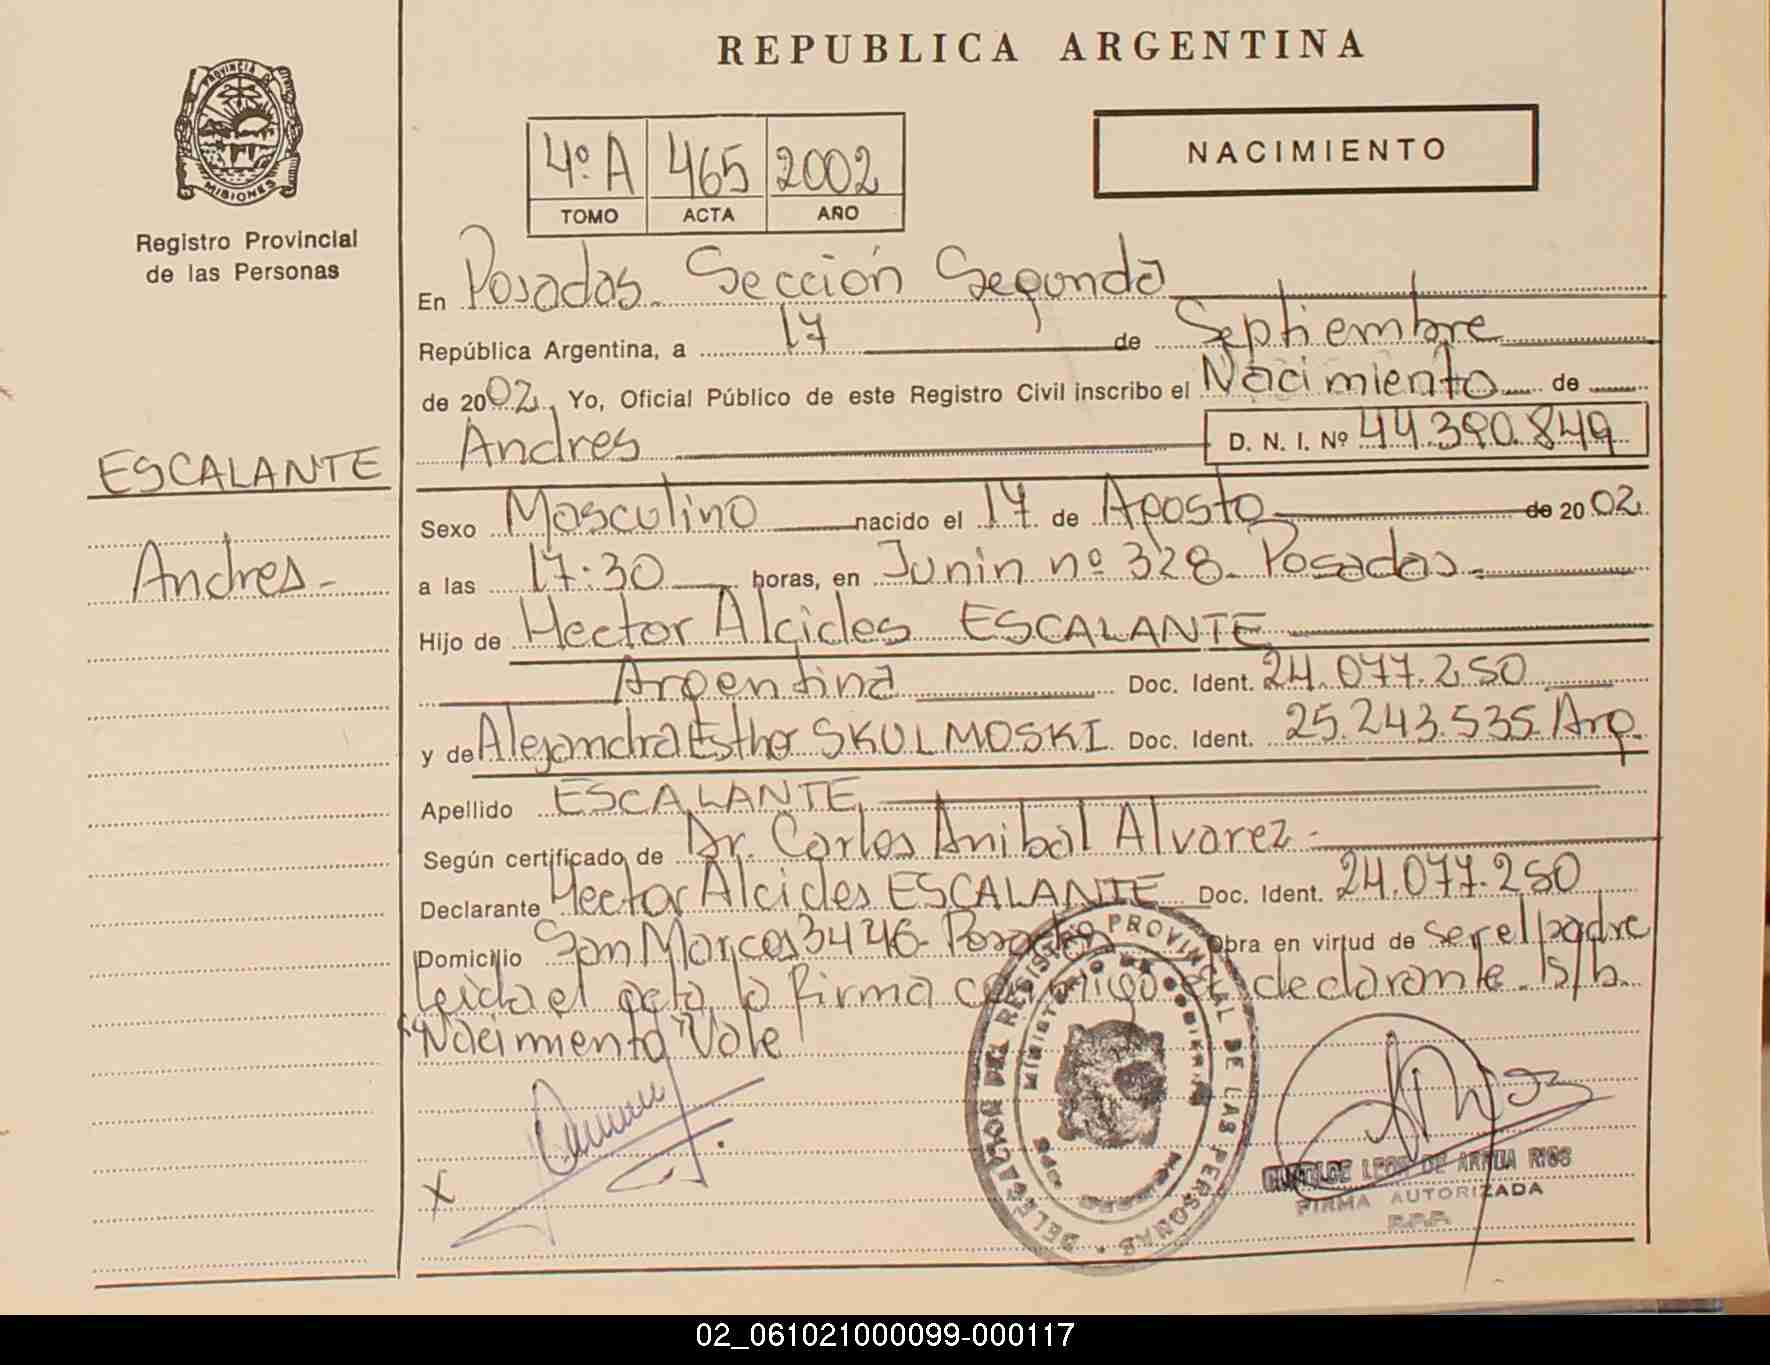 REPUBLICA ARGENTINA
PROVINCIA DE
MISIONES
Registro Provincial
de las Personas
4º A 465 2002
TOMO ACTA AÑO
NACIMIENTO
En Posadas. Sección Segunda
República Argentina, a 17 de Septiembre
de 2002. Yo, Oficial Público de este Registro Civil inscribo el Nacimiento de
Andres D. N. I. Nº 44.390.849
ESCALANTE
Andres.-
Sexo Masculino nacido el 17 de Agosto de 2002
a las 17:30 horas, en Junin nº 328. Posadas.
Hijo de Hector Alcides ESCALANTE
Argentina Doc. Ident. 24.077.250
y de Alejandra Esther SKULMOSKI Doc. Ident. 25.243.535 Arg.
Apellido ESCALANTE
Según certificado de Dr. Carlos Anibal Alvarez.-
Declarante Hector Alcides ESCALANTE Doc. Ident. 24.077.250
Domicilio San Marcos 3446- Posadas Obra en virtud de ser el padre
Leida el acta la firma conmigo el declarante. s/b.
"Nacimiento" Vale
X
DELEGACION DEL REGISTRO PROVINCIAL DE LAS PERSONAS
MINISTERIO DE GOBIERNO
LEON DE ARRUA RIOS
FIRMA AUTORIZADA
R.P.P.
02_061021000099-000117